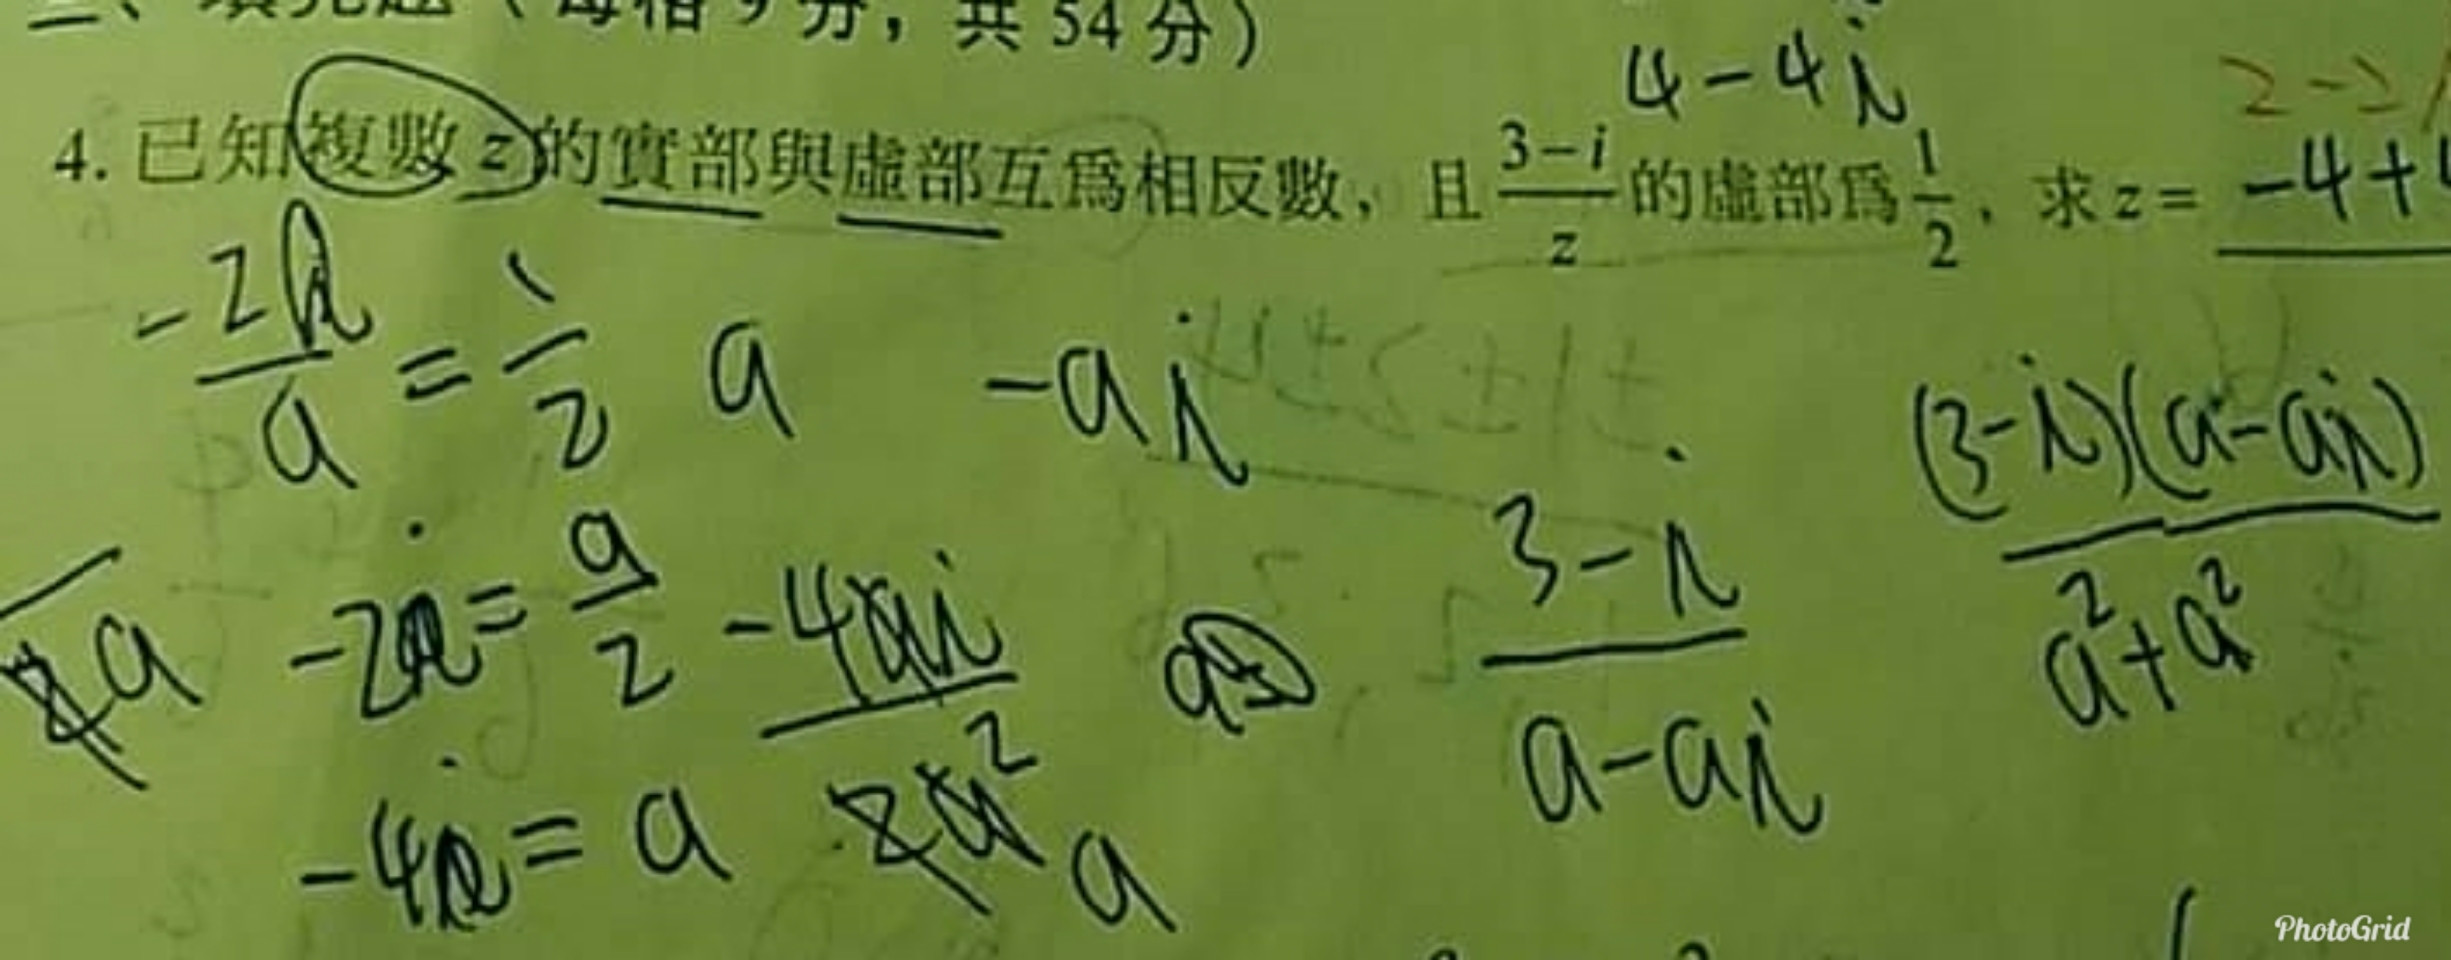 (每格9分,共54分)
4-4i
4. 已知複數 z 的實部與虛部互為相反數,且 \frac{3-i}{z} 的虛部為 \frac{1}{2},求 z = -4+4
2-2
\frac{-2}{a} = \frac{1}{2} a -ai
\frac{(3-i)(a-ai)}{a^2+a^2}
a -2i = \frac{a}{2} \frac{-4ai}{2a^2} \frac{3-i}{a-ai}
-4 = a a
PhotoGrid